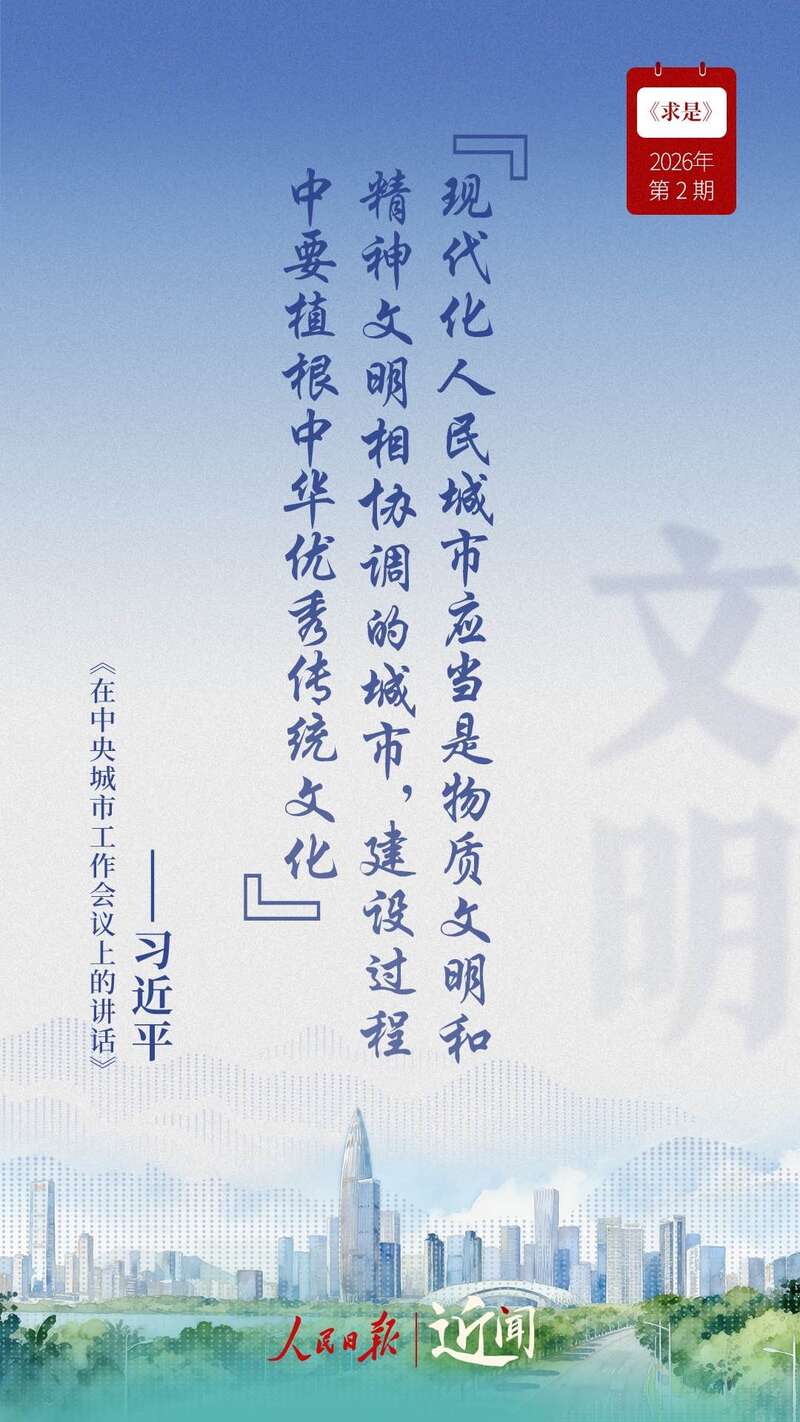 《求是》
2026年
第2期
『现代化人民城市应当是物质文明和
精神文明相协调的城市，建设过程
中要植根中华优秀传统文化』
——习近平
《在中央城市工作会议上的讲话》
文明
人民日报|近闻